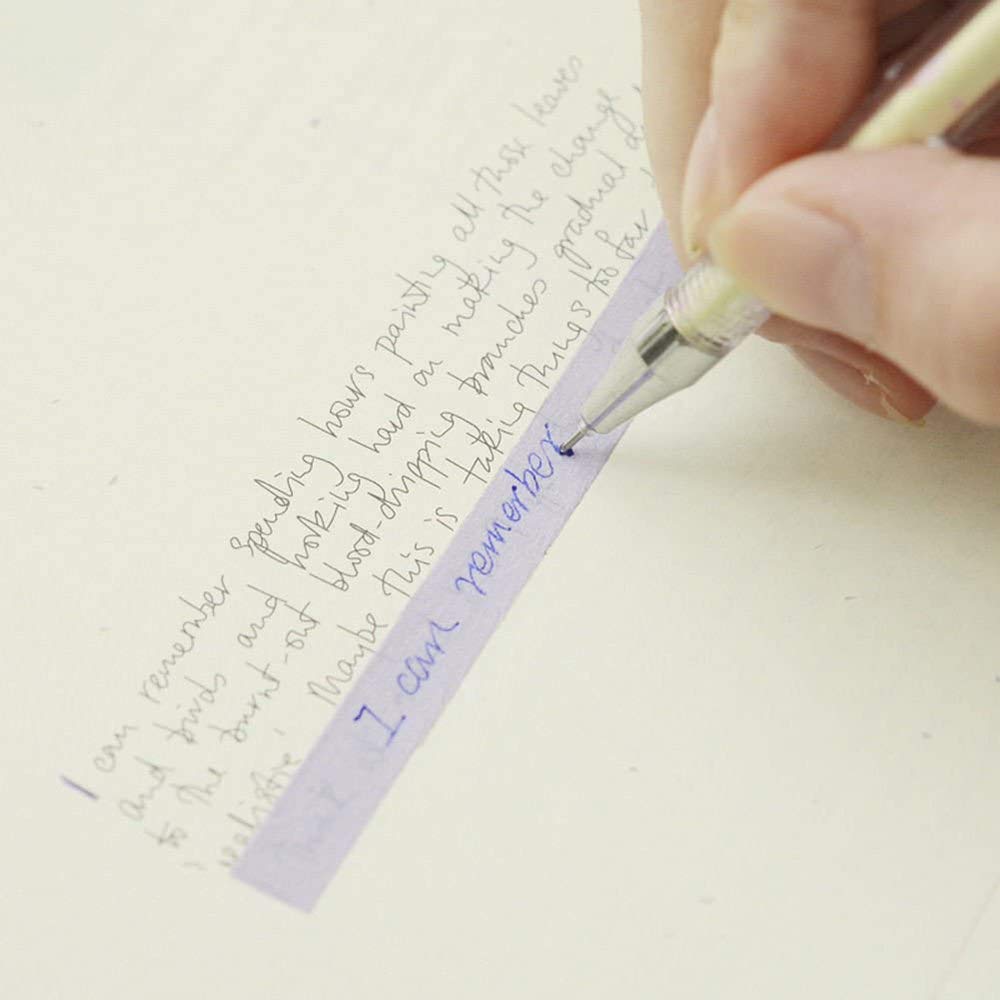 I can remember spending hours painting all those leaves
and birds and working hard on making the change
to the burnt-out blood-dripping branches gradual
'realistic' Maybe this is taking things too far
I can remerber